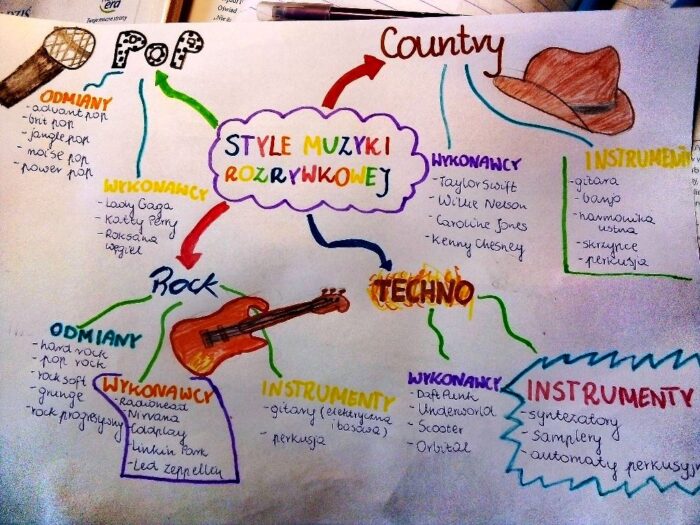 Pop
Country
STYLE MUZYKI
ROZRYWKOWEJ
ODMIANY
- advant pop
- brit pop
- jangle pop
- noise pop
- power pop
WYKONAWCY
- Lady Gaga
- Katty Perry
- Roksana
Węgiel
WYKONAWCY
- Taylor Swift
- Willie Nelson
- Caroline Jones
- Kenny Chesney
INSTRUMENTY
- gitara
- banjo
- harmonika
ustna
- skrzypce
- perkusja
Rock
ODMIANY
- hard rock
- pop rock
- rock soft
- grunge
- rock progresywny
WYKONAWCY
- Radiohead
- Nirvana
- Coldplay
- Linkin Park
- Led Zeppelin
INSTRUMENTY
- gitary (elektryczna
i basowa)
- perkusja
TECHNO
WYKONAWCY
- Daft Punk
- Underworld
- Scooter
- Orbital
INSTRUMENTY
- syntezatory
- samplery
- automaty perkusyj